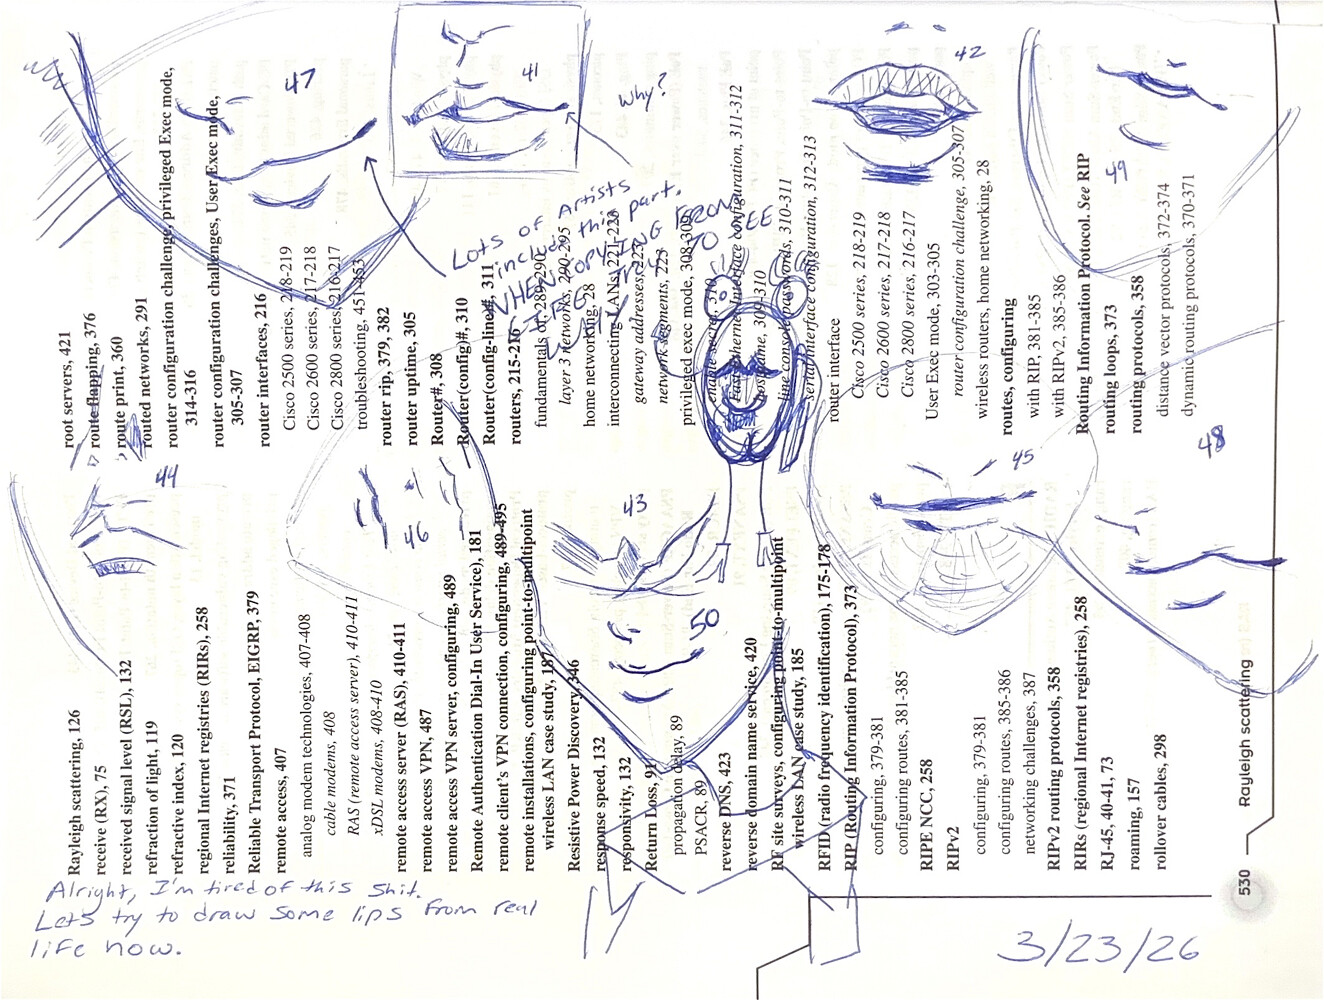 47
41
why?
42
49
Lots of Artists
include this part.
WHEN COPYING FROM
LIFE I
TO SEE
44
46
43
50
45
48
Alright, I'm tired of this shit.
Let's try to draw some lips from real
life now.
3/23/26
Rayleigh scattering, 126
receive (RX), 75
received signal level (RSL), 132
refraction of light, 119
refractive index, 120
regional Internet registries (RIRs), 258
reliability, 371
Reliable Transport Protocol, EIGRP, 379
remote access, 407
analog modem technologies, 407-408
cable modems, 408
RAS (remote access server), 410-411
xDSL modems, 408-410
remote access server (RAS), 410-411
remote access VPN, 487
remote access VPN server, configuring, 489
Remote Authentication Dial-In User Service), 181
remote client's VPN connection, configuring, 489-495
remote installations, configuring point-to-multipoint
wireless LAN case study, 187
Resistive Power Discovery, 346
response speed, 132
responsivity, 132
Return Loss, 91
propagation delay, 89
PSACR, 89
reverse DNS, 423
reverse domain name service, 420
RF site surveys, configuring point-to-multipoint
wireless LAN case study, 185
RFID (radio frequency identification), 175-178
RIP (Routing Information Protocol), 373
configuring, 379-381
configuring routes, 381-385
RIPE NCC, 258
RIPv2
configuring, 379-381
configuring routes, 385-386
networking challenges, 387
RIPv2 routing protocols, 358
RIRs (regional Internet registries), 258
RJ-45, 40-41, 73
roaming, 157
rollover cables, 298
root servers, 421
route flapping, 376
route print, 360
routed networks, 291
router configuration challenge, privileged Exec mode,
314-316
router configuration challenges, User Exec mode,
305-307
router interfaces, 216
Cisco 2500 series, 218-219
Cisco 2600 series, 217-218
Cisco 2800 series, 216-217
troubleshooting, 451-453
router rip, 379, 382
router uptime, 305
Router#, 308
Router(config)#, 310
Router(config-line)#, 311
routers, 215-216
fundamentals of, 289-290
layer 3 networks, 290-295
home networking, 28
interconnecting LANs, 221-223
gateway addresses, 223
network segments, 223
privileged exec mode, 308-309
enable secret, 310
FastEthernet interface configuration, 311-312
hostname, 309-310
line console passwords, 310-311
serial interface configuration, 312-313
router interface
Cisco 2500 series, 218-219
Cisco 2600 series, 217-218
Cisco 2800 series, 216-217
User Exec mode, 303-305
router configuration challenge, 305-307
wireless routers, home networking, 28
routes, configuring
with RIP, 381-385
with RIPv2, 385-386
Routing Information Protocol. See RIP
routing loops, 373
routing protocols, 358
distance vector protocols, 372-374
dynamic routing protocols, 370-371
530
Rayleigh scattering